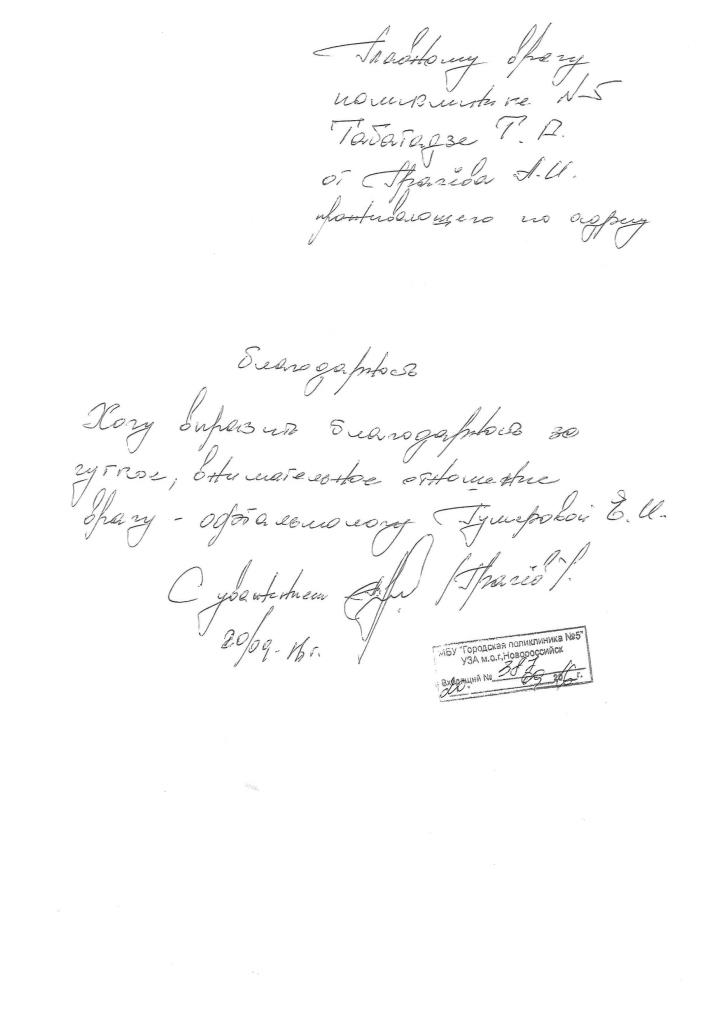 Главному врачу
поликлиники №5
Табатадзе Т. Д.
от Грачёва А.И.
проживающего по адресу
Благодарность
Хочу выразить благодарность за
чуткое, внимательное отношение
врачу - офтальмологу Гумеровой Е.И.
С уважением /Грачёв/.
20/09-16г.
МБУ "Городская поликлиника №5"
УЗА м.о.г.Новороссийск
Входящий № 387
20. 09 2016г.